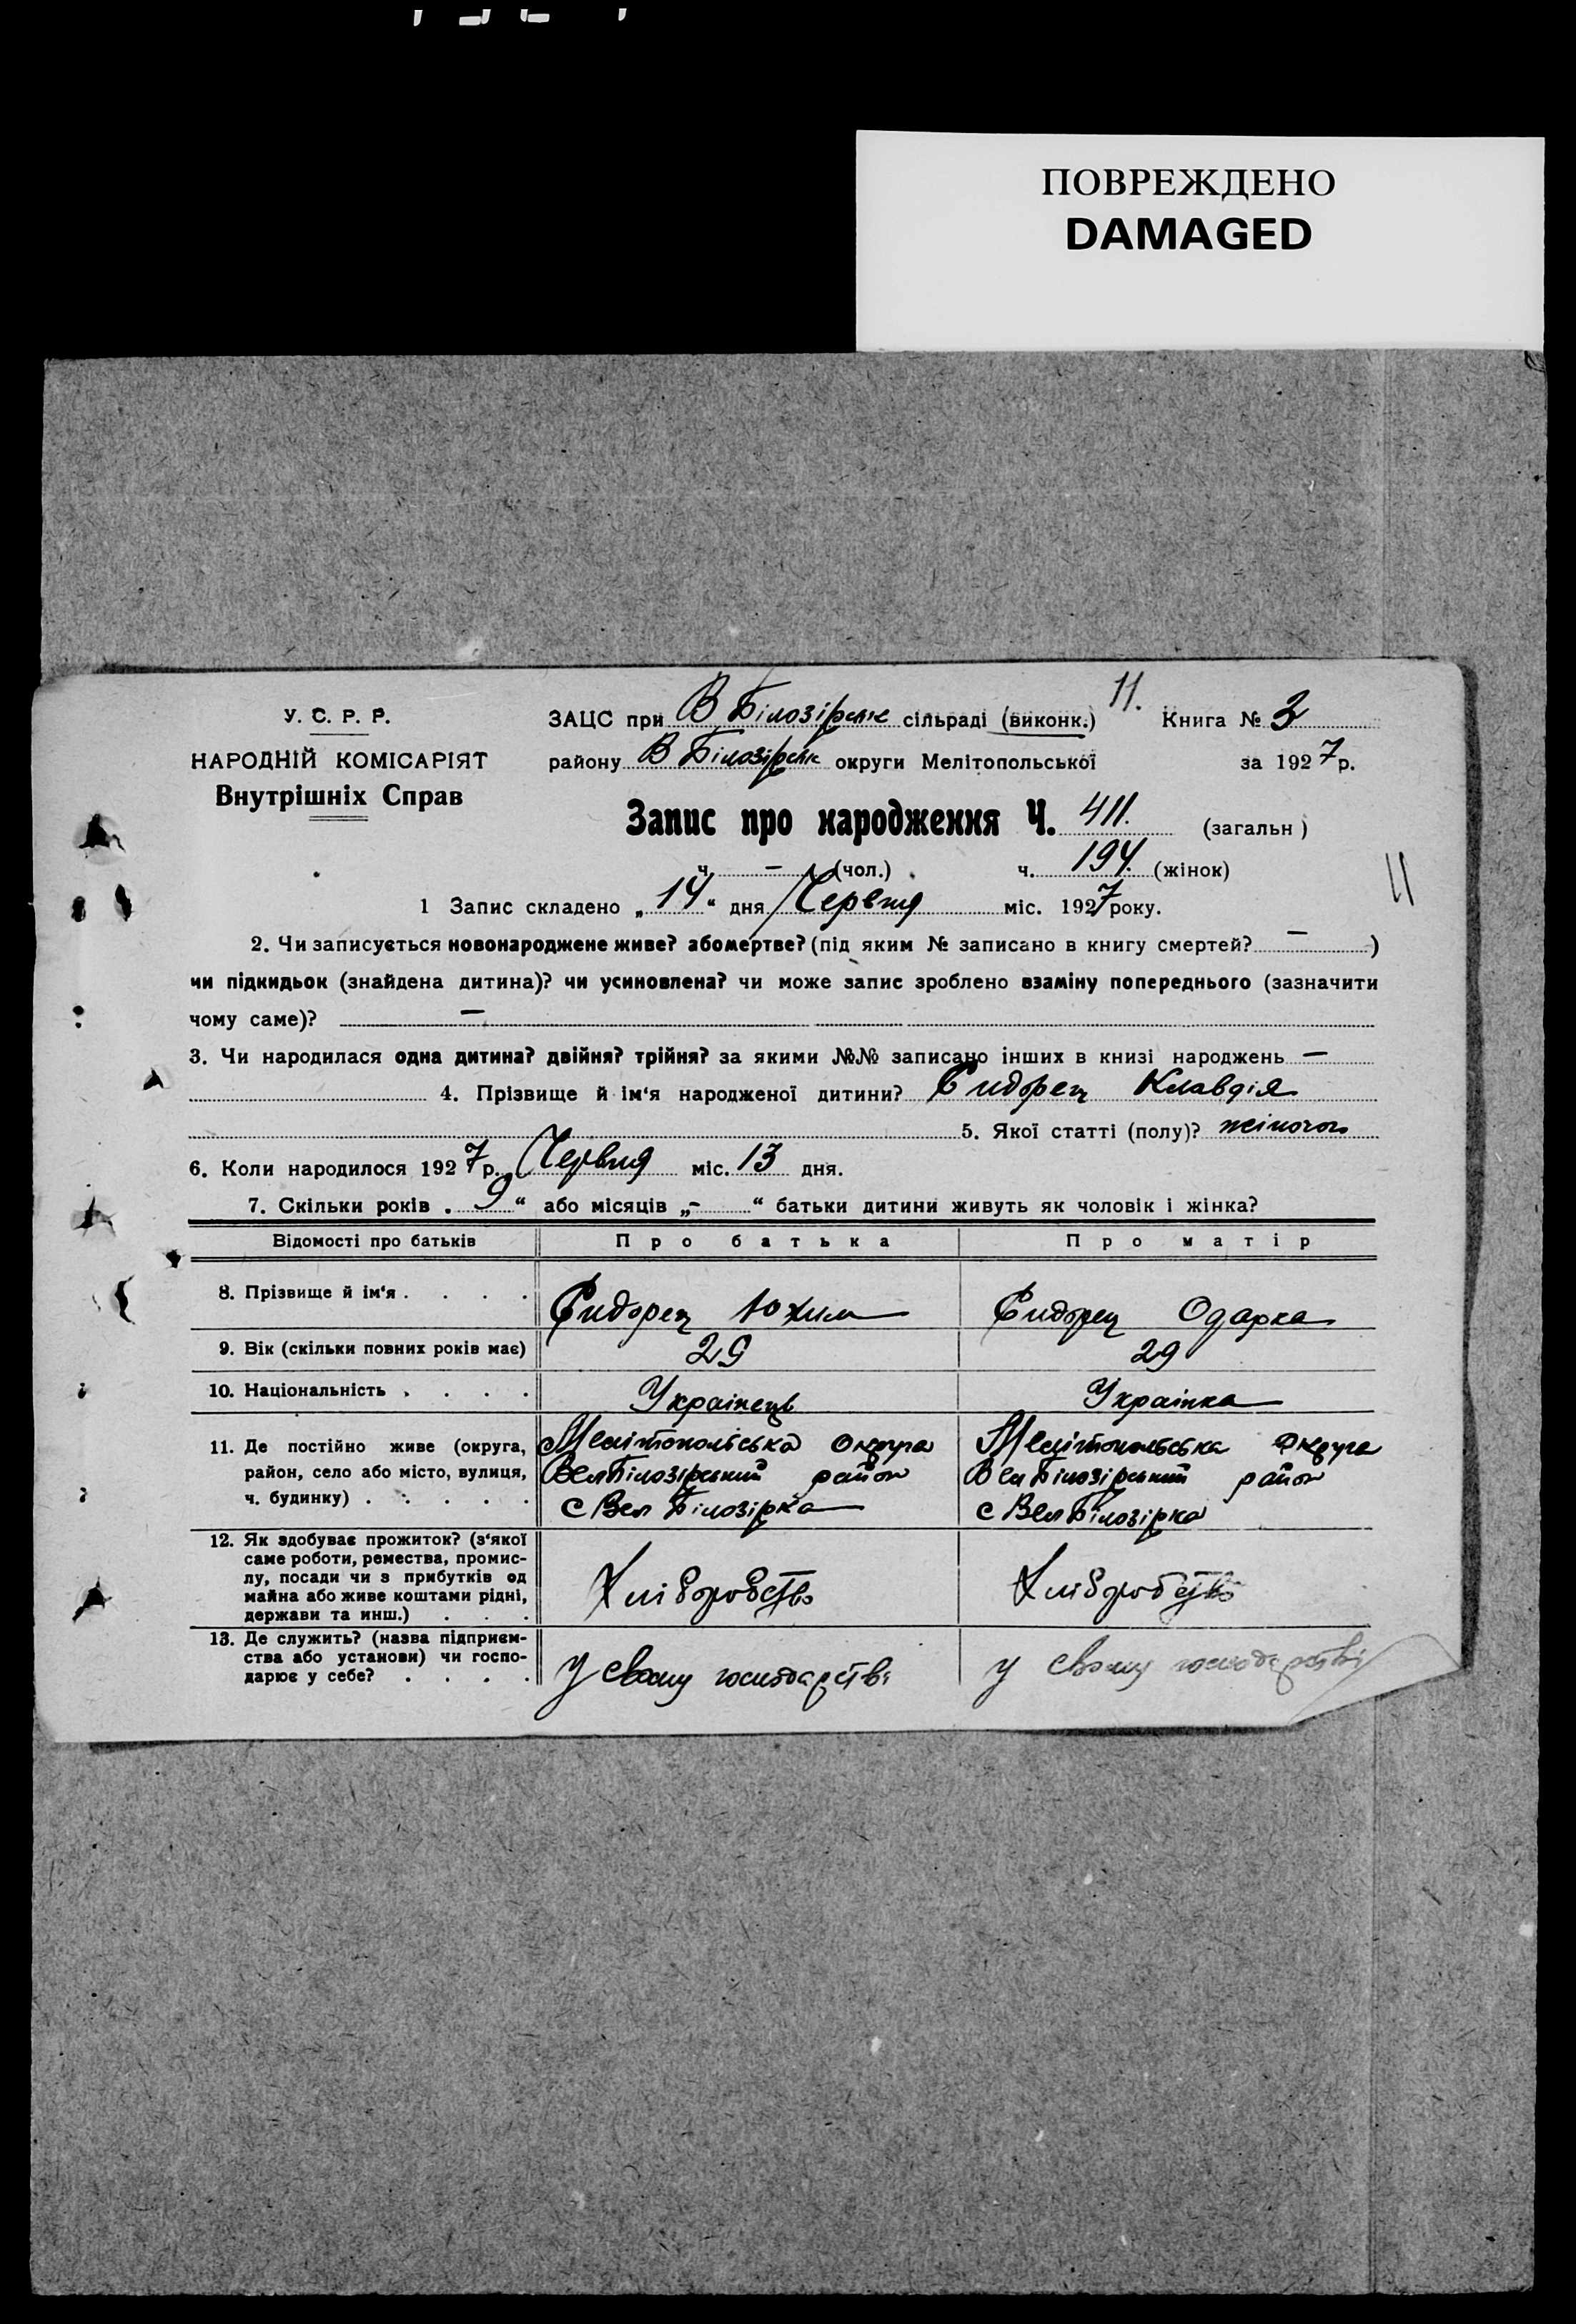 ПОВРЕЖДЕНО
DAMAGED
11.
У. С. Р. Р.
НАРОДНІЙ КОМІСАРІЯТ
Внутрішніх Справ
ЗАЦС при В Білозірське сільраді (виконк.) Книга № 3
району В Білозірськ округи Мелітопольської за 1927 р.
Запис про народження Ч. 411. (загальн)
ч. — (чол.) ч. 194. (жінок)
11
1 Запис складено „14“ дня Червня міс. 1927 року.
2. Чи записується новонароджене живе? або мертве? (під яким № записано в книгу смертей? — )
чи підкидьок (знайдена дитина)? чи усиновлена? чи може запис зроблено взаміну попереднього (зазначити
чому саме)? —
3. Чи народилася одна дитина? двійня? трійня? за якими №№ записано інших в книзі народжень —
4. Прізвище й ім‘я народженої дитини? Сидорец Клавдія
5. Якої статті (полу)? жіночого
6. Коли народилося 1927 р. Червня міс. 13 дня.
7. Скільки років „ 9 “ або місяців „ - “ батьки дитини живуть як чоловік і жінка?
Відомості про батьків Про батька Про матір
8. Прізвище й ім‘я . . . . Сидорец Юхим Сидорец Одарка
9. Вік (скільки повних років має) 29 29
10. Національність . . . . Українець Українка
11. Де постійно живе (округа, Мелітопольська округа Мелітопольська округа
район, село або місто, вулиця, Вел Білозірський район Вел Білозірський район
ч. будинку) . . . . . с Вел Білозірка с Вел Білозірка
12. Як здобуває прожиток? (з‘якої
саме роботи, ремества, промис-
лу, посади чи з прибутків од Хліборобство Хліборобство
майна або живе коштами рідні,
держави та инш.) . . .
13. Де служить? (назва підприєм-
ства або установи) чи госпо- у свому господарстві у свому господарстві
дарює у себе? . . . .